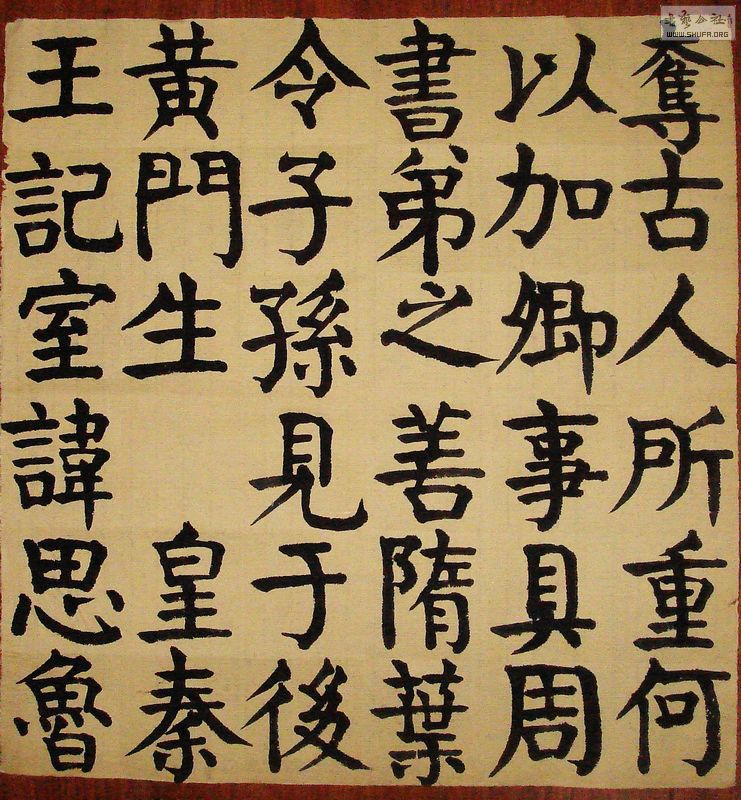 奪古人所重何
以加卿事具周
書弟之善隋葉
令子孫見于後
黃門生 皇秦
王記室諱思魯
北藝公社
WWW.SHUFA.ORG